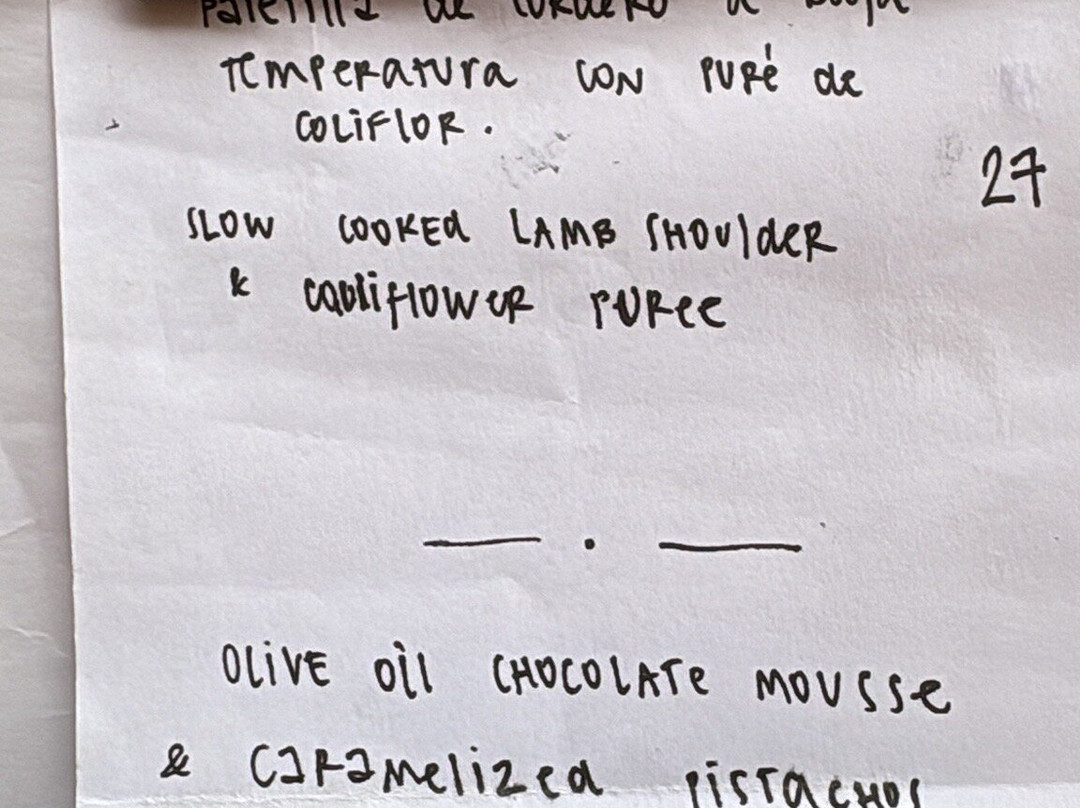 Paletilla de cordero a baja
Temperatura con puré de
coliflor.
27
Slow cooked lamb shoulder
& cauliflower puree
Olive oil chocolate mousse
& caramelized pistachos